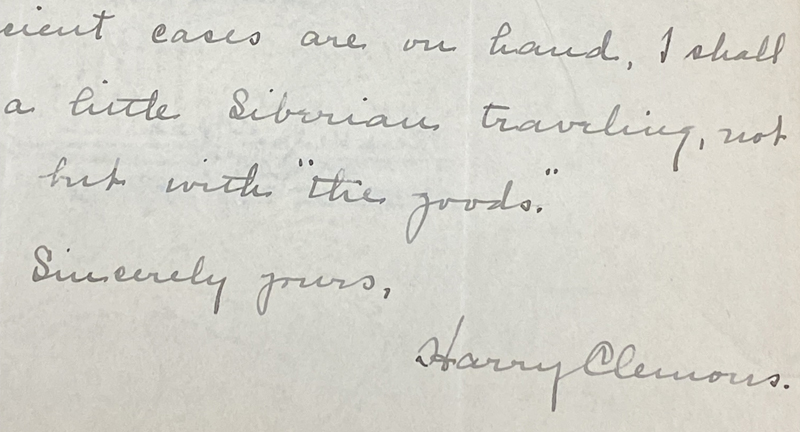 cient cases are on hand, I shall
a little Siberian traveling, not
but with "the goods."
Sincerely yours,
Harry Clemons.